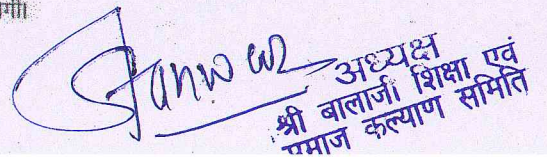 Tanwar
अध्यक्ष
श्री बालाजी शिक्षा एवं
समाज कल्याण समिति